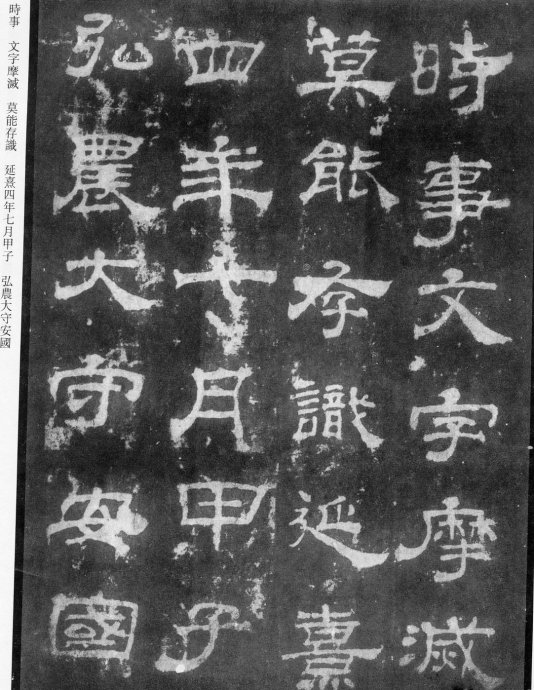 時事文字摩滅
莫能存識延熹
四年七月甲子
弘農大守安國
時事 文字摩滅 莫能存識 延熹四年七月甲子 弘農大守安國